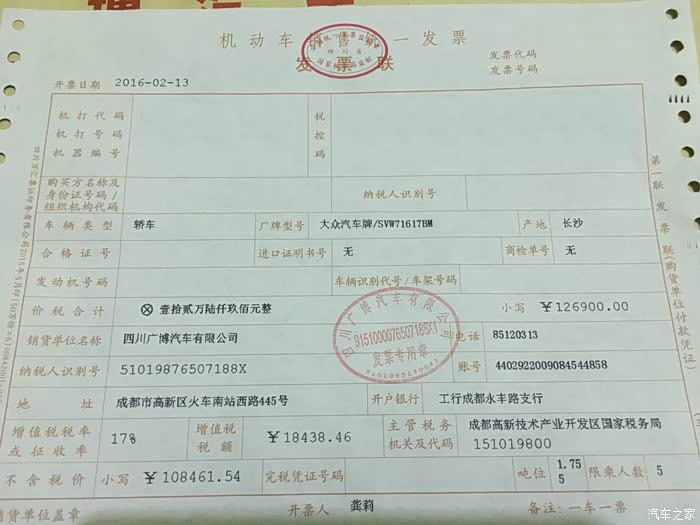 机动车销售统一发票
发票联
发票代码
发票号码
开票日期 2016-02-13
机打代码
机打号码
机器编号
税控码
购买方名称及身份证号码/组织机构代码
纳税人识别号
车辆类型 轿车 厂牌型号 大众汽车牌/SVW71617BM 产地 长沙
合格证号 进口证明书号 无 商检单号 无
发动机号码 车辆识别代号/车架号码
价税合计 ⊗壹拾贰万陆仟玖佰元整 小写 ¥126900.00
销货单位名称 四川广博汽车有限公司 电话 85120313
纳税人识别号 51019876507188X 账号 4402922009084544858
地址 成都市高新区火车南站西路445号 开户银行 工行成都永丰路支行
增值税税率或征收率 17% 增值税税额 ¥18438.46 主管税务机关及代码 成都高新技术产业开发区国家税务局 151019800
不含税价 小写 ¥108461.54 完税凭证号码 吨位 1.755 限乘人数 5
销货单位盖章 开票人 龚莉 备注:一车一票
四川广博汽车有限公司
9151000076507188X1
发票专用章
5101095170043
四川省
国家税务局监制
第一联 发票联(购货单位付款凭证)
汽车之家